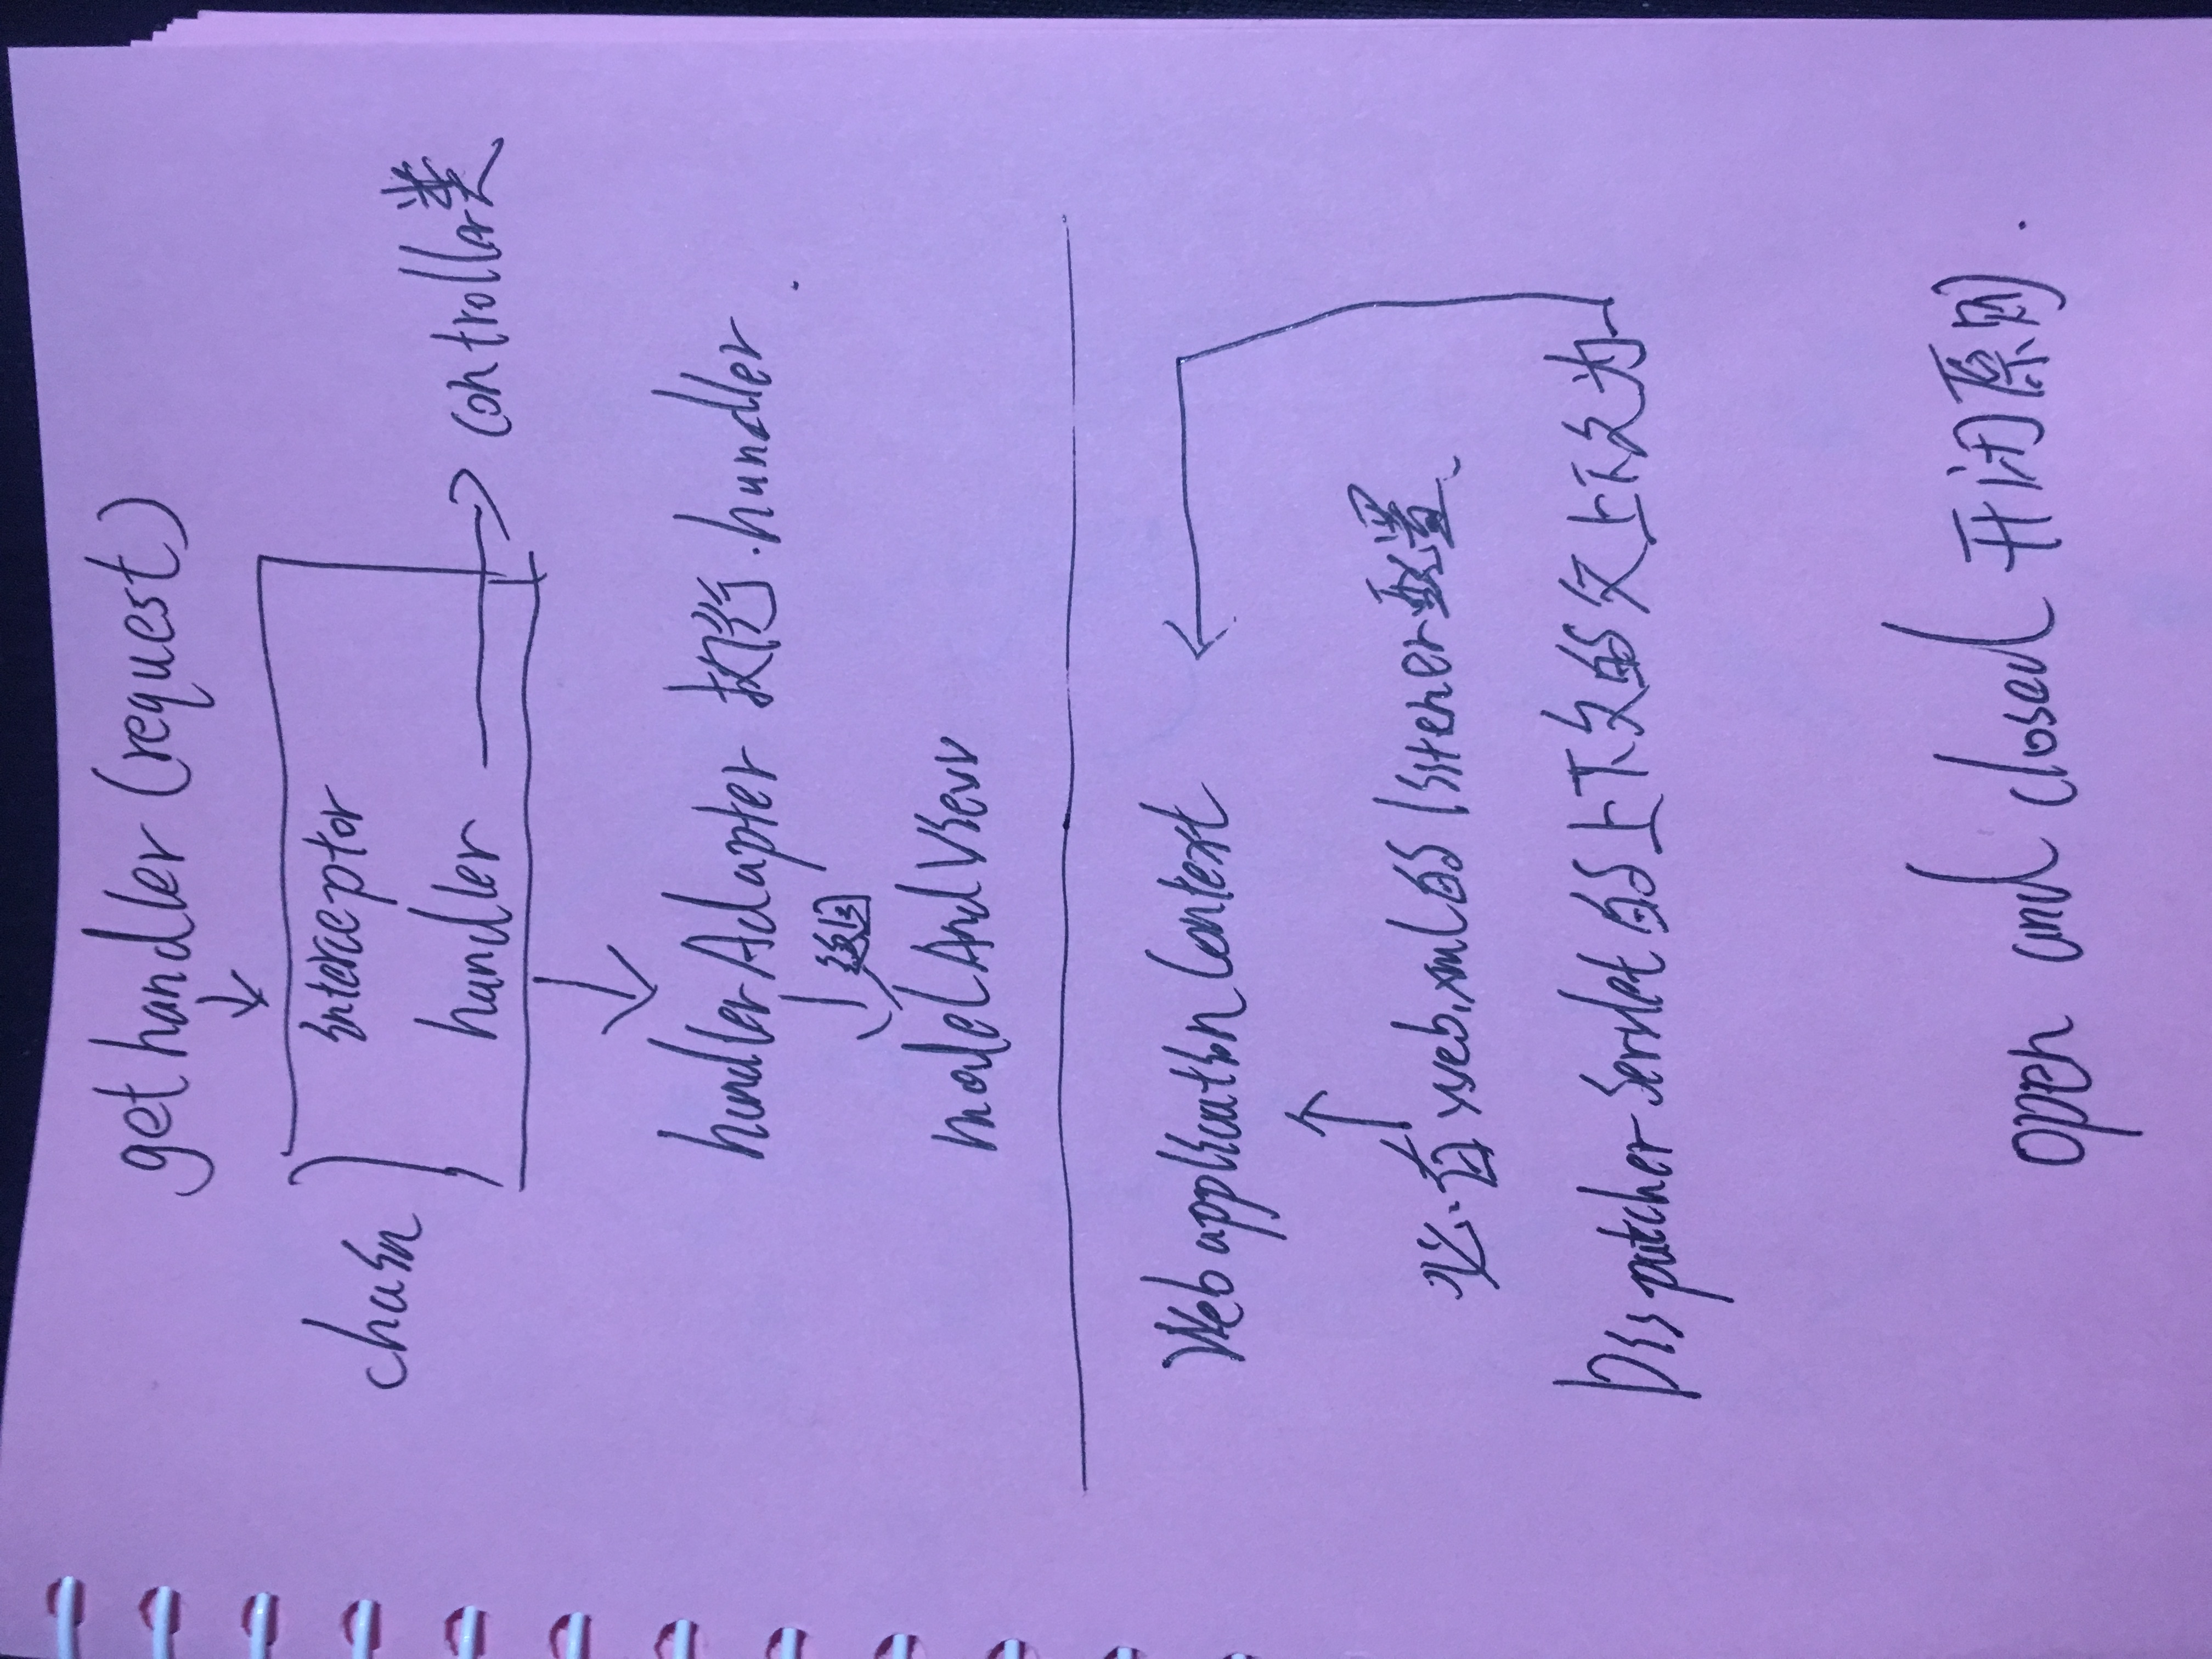 gethandler(request)
interceptor
chain
handler
controller类
handlerAdapter 执行.handler
返回
modelAndView
WebapplicationContext
必有web.xml的listener配置、
DispatcherServlet的上下文的父上下文为
open and closed 开闭原则.